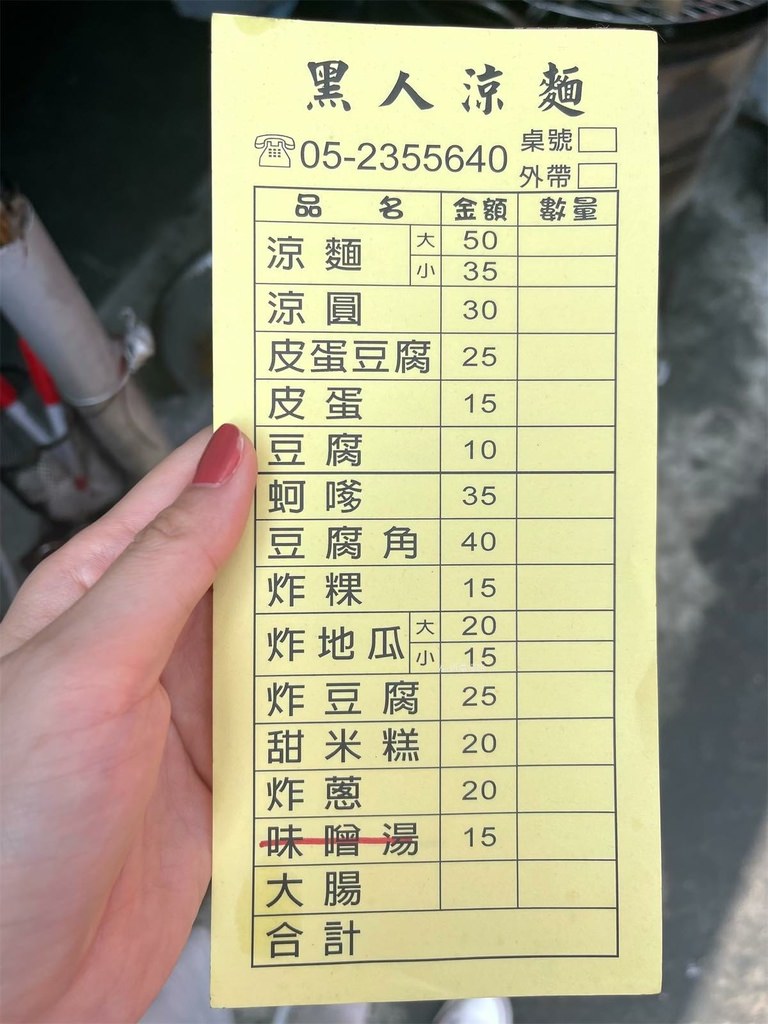 黑人涼麵
☏05-2355640 桌號
外帶
品名 金額 數量
涼麵 大 50
小 35
涼圓 30
皮蛋豆腐 25
皮蛋 15
豆腐 10
蚵嗲 35
豆腐角 40
炸粿 15
炸地瓜 大 20
小 15
炸豆腐 25
甜米糕 20
炸蔥 20
味噌湯 15
大腸
合計